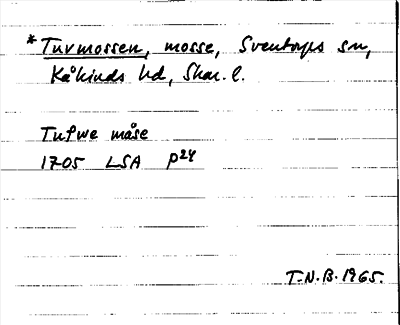 * Tuvmossen, mosse, Sventorps sn,
Kåkinds hd, Skar. l.
Tufwe måse
1705 LSA P24
T.N.B. 1965.